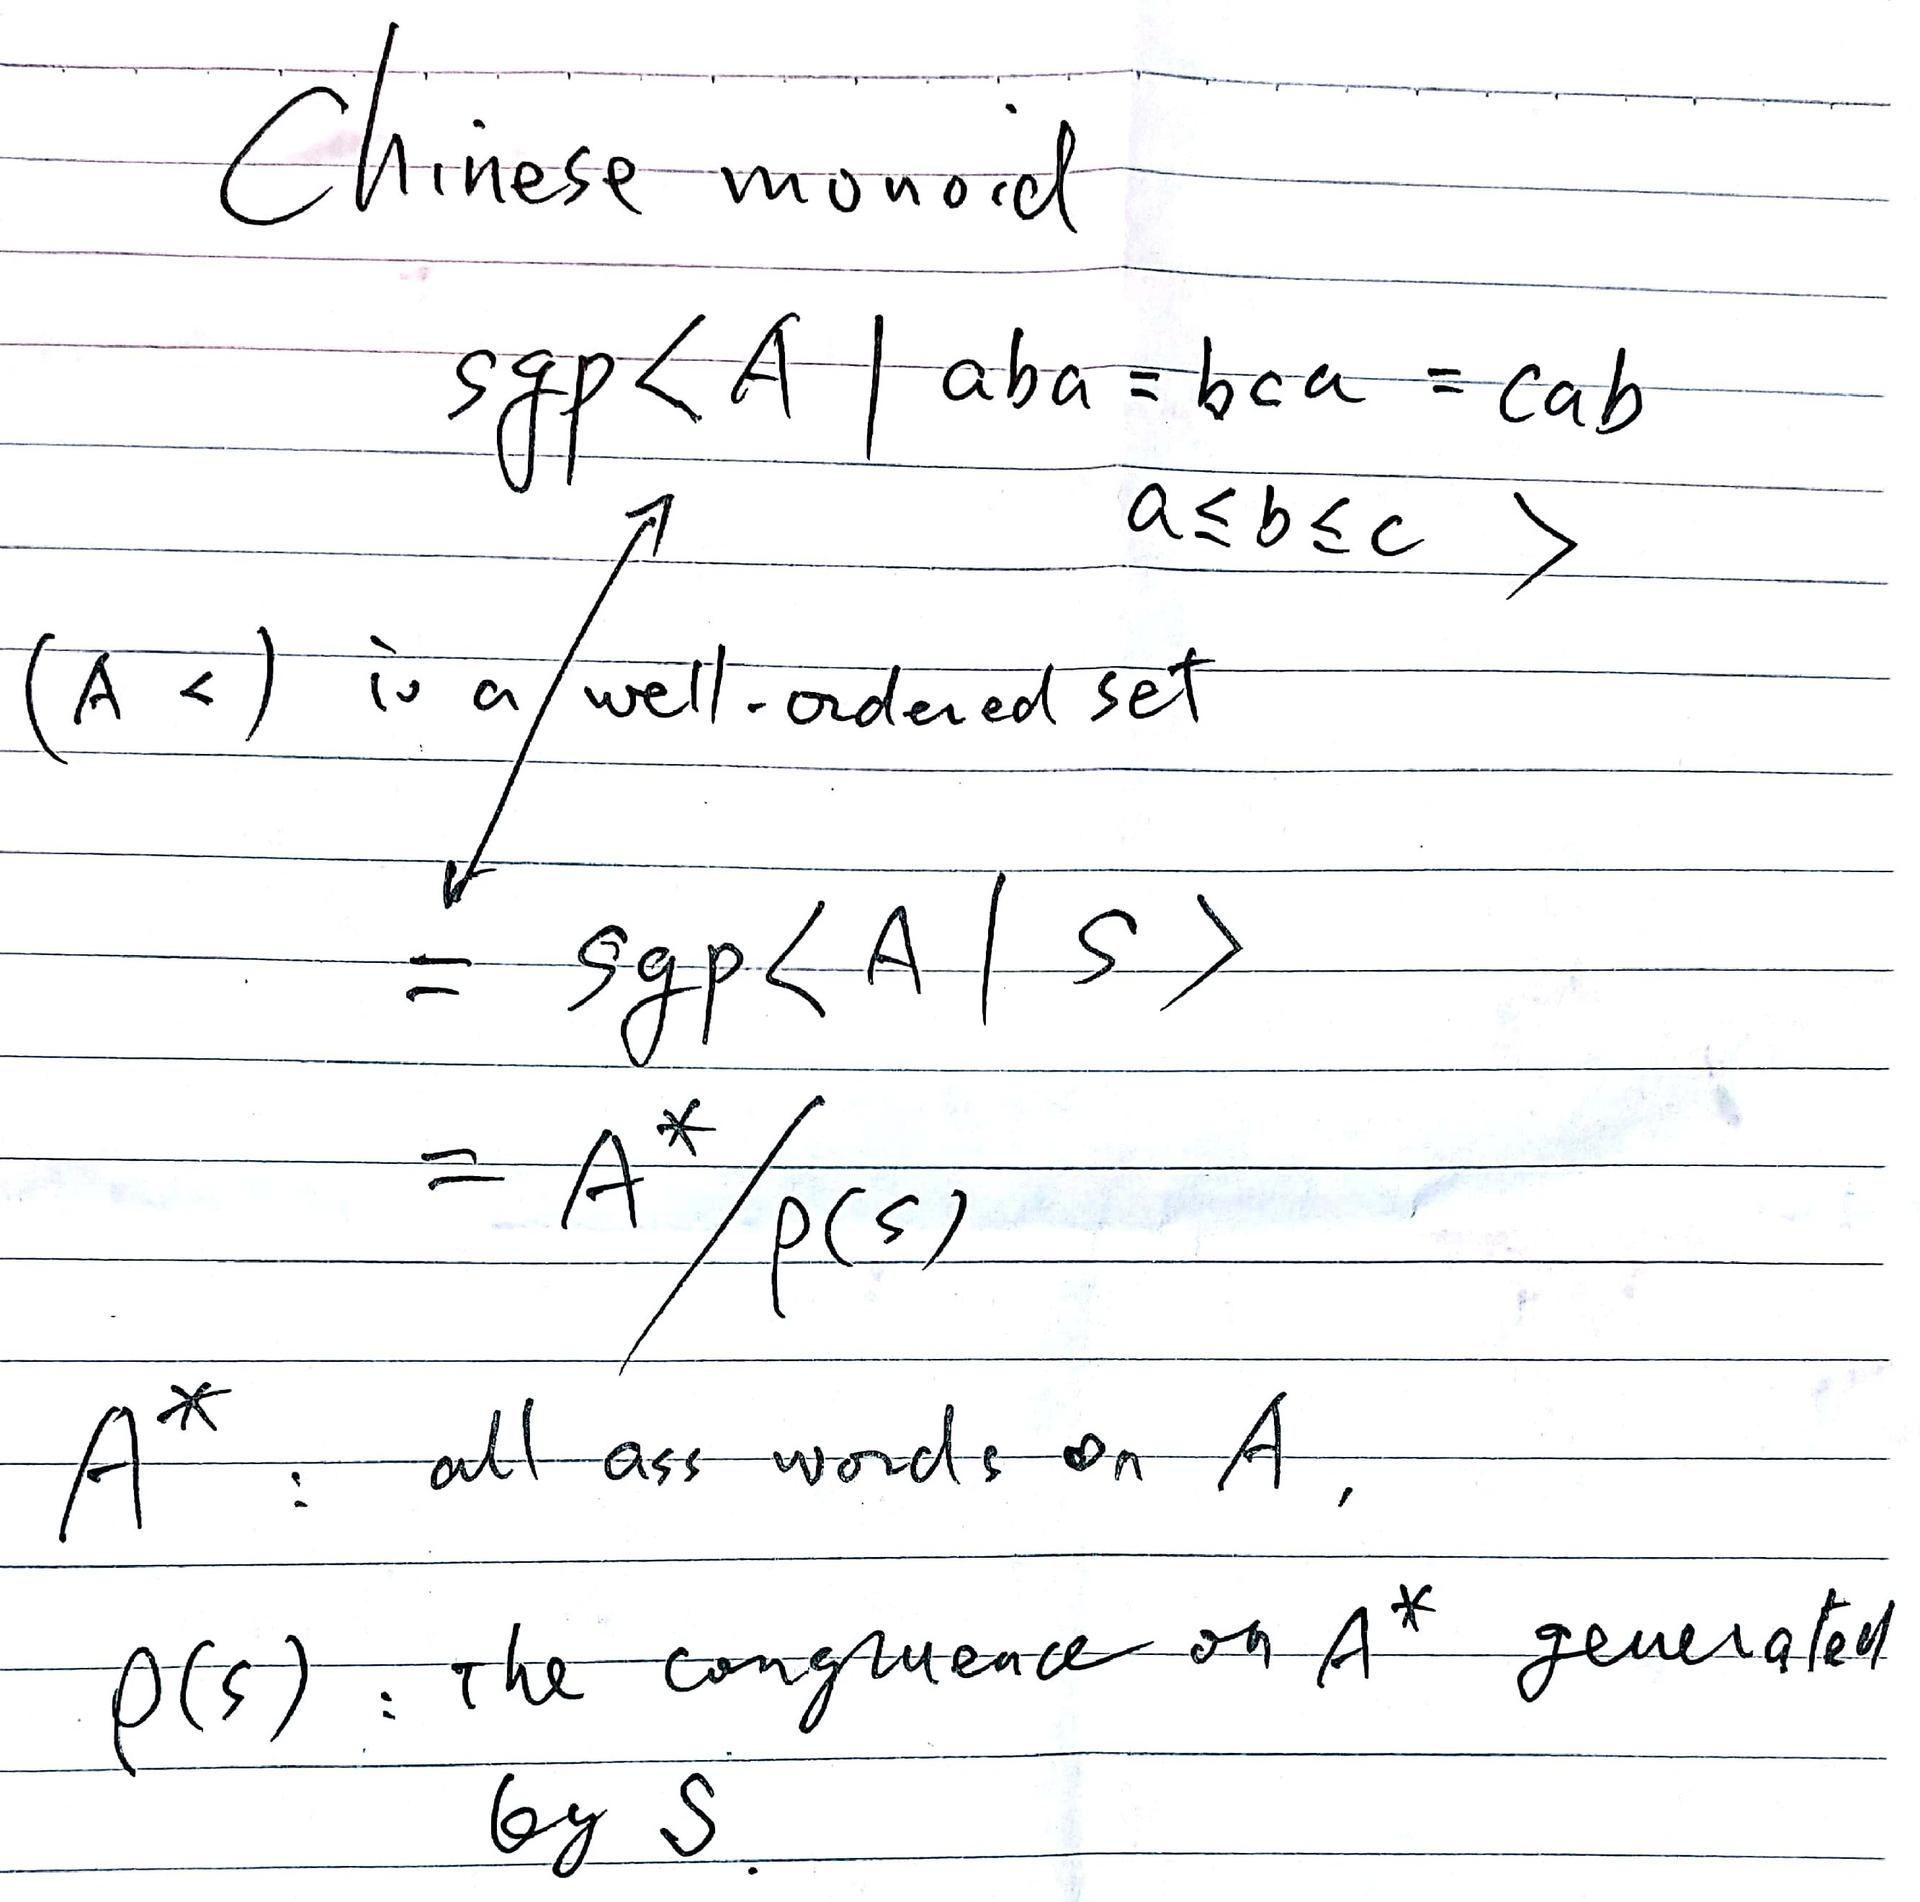 Chinese monoid
sgp<A | aba = bca = cab
a≤b≤c >
(A <) is a well-ordered set
= sgp<A | S>
= A*/ρ(S)
A* : all ass words on A,
ρ(S) : the congruence on A* generated
by S.